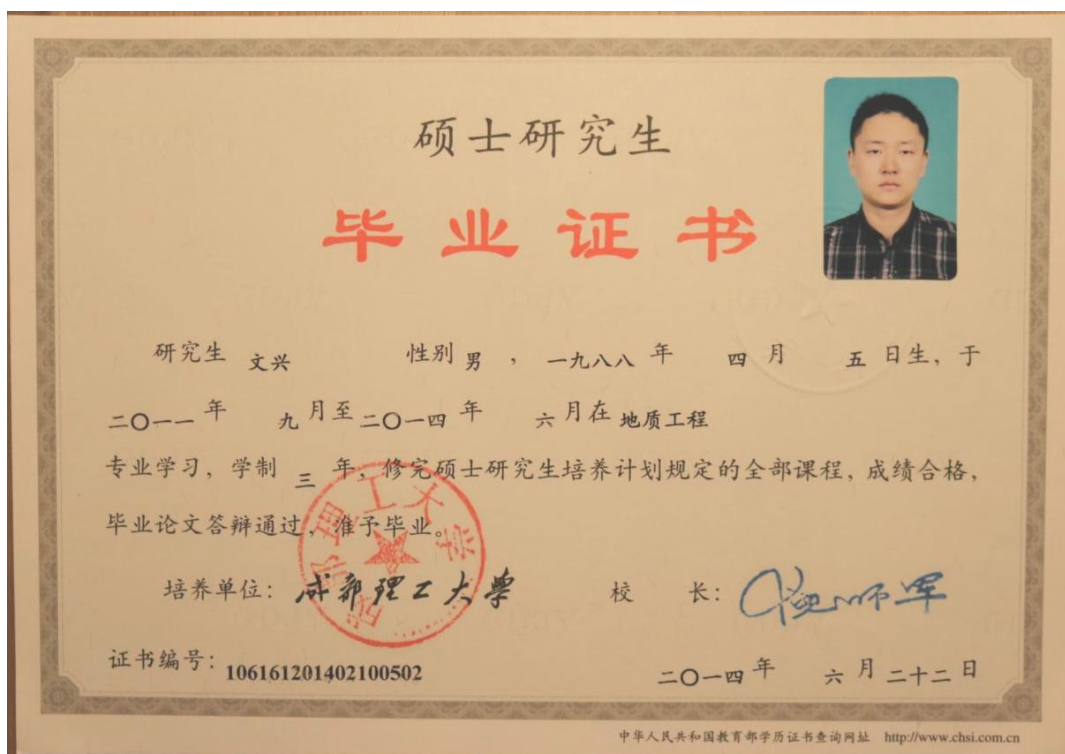 硕士研究生
毕业证书
研究生 文兴 性别 男 , 一九八八 年 四 月 五 日生, 于
二〇一一 年 九 月至 二〇一四 年 六 月在 地质工程
专业学习, 学制 三 年, 修完硕士研究生培养计划规定的全部课程, 成绩合格,
毕业论文答辩通过, 准予毕业。
成都理工大学
培养单位: 成都理工大学 校 长:
证书编号: 106161201402100502 二〇一四 年 六 月 二十二 日
中华人民共和国教育部学历证书查询网址 http://www.chsi.com.cn